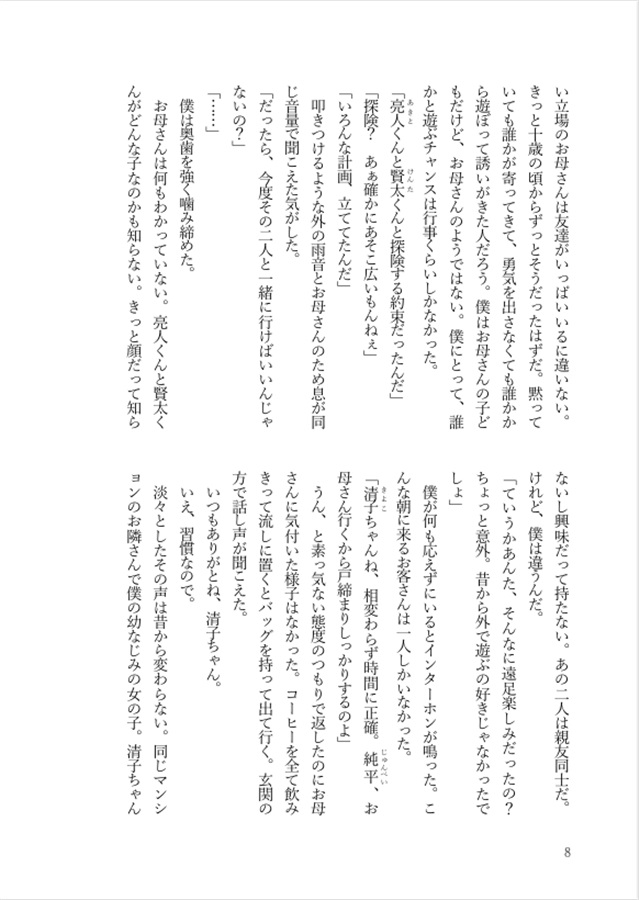 い立場のお母さんは友達がいっぱいいるに違いない。
きっと十歳の頃からずっとそうだったはずだ。黙って
いても誰かが寄ってきて、勇気を出さなくても誰かか
ら遊ぼって誘いがきた人だろう。僕はお母さんの子ど
もだけど、お母さんのようではない。僕にとって、誰
かと遊ぶチャンスは行事くらいしかなかった。
「亮人くんと賢太くんと探険する約束だったんだ」
「探険？　あぁ確かにあそこ広いもんねぇ」
「いろんな計画、立ててたんだ」
　叩きつけるような外の雨音とお母さんのため息が同
じ音量で聞こえた気がした。
「だったら、今度その二人と一緒に行けばいいんじゃ
ないの？」
「……」
　僕は奥歯を強く噛み締めた。
　お母さんは何もわかっていない。亮人くんと賢太く
んがどんな子なのかも知らない。きっと顔だって知ら
ないし興味だって持たない。あの二人は親友同士だ。
けれど、僕は違うんだ。
「ていうかあんた、そんなに遠足楽しみだったの？
ちょっと意外。昔から外で遊ぶの好きじゃなかったで
しょ」
　僕が何も応えずにいるとインターホンが鳴った。こ
んな朝に来るお客さんは一人しかいなかった。
「清子ちゃんね、相変わらず時間に正確。純平、お
母さん行くから戸締まりしっかりするのよ」
　うん、と素っ気ない態度のつもりで返したのにお母
さんに気付いた様子はなかった。コーヒーを全て飲み
きって流しに置くとバッグを持って出て行く。玄関の
方で話し声が聞こえた。
　いつもありがとね、清子ちゃん。
　いえ、習慣なので。
　淡々としたその声は昔から変わらない。同じマンシ
ョンのお隣さんで僕の幼なじみの女の子。清子ちゃん
あきと
けんた
きよこ
じゅんぺい
8